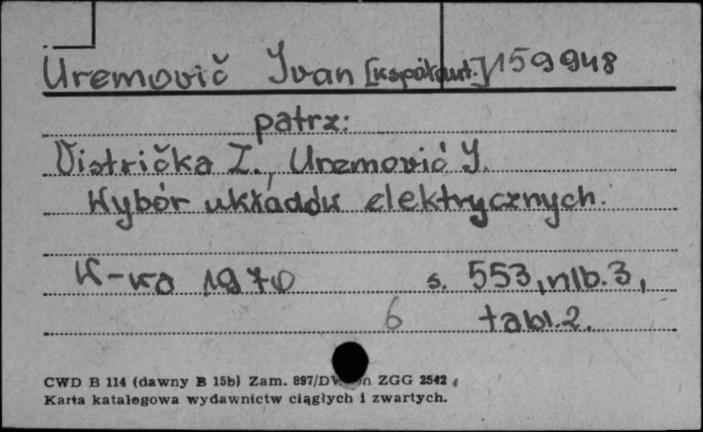 Uremovič Ivan [współaut.] 159948
patrz:
Vistrička Z., Uremovič I.
Wybór układów elektrycznych.
W-wa 1970 s. 553, nlb. 3,
6 tabl. 2.
CWD B 114 (dawny B 15b) Zam. 897/D ZGG 2542
Karta katalogowa wydawnictw ciągłych i zwartych.